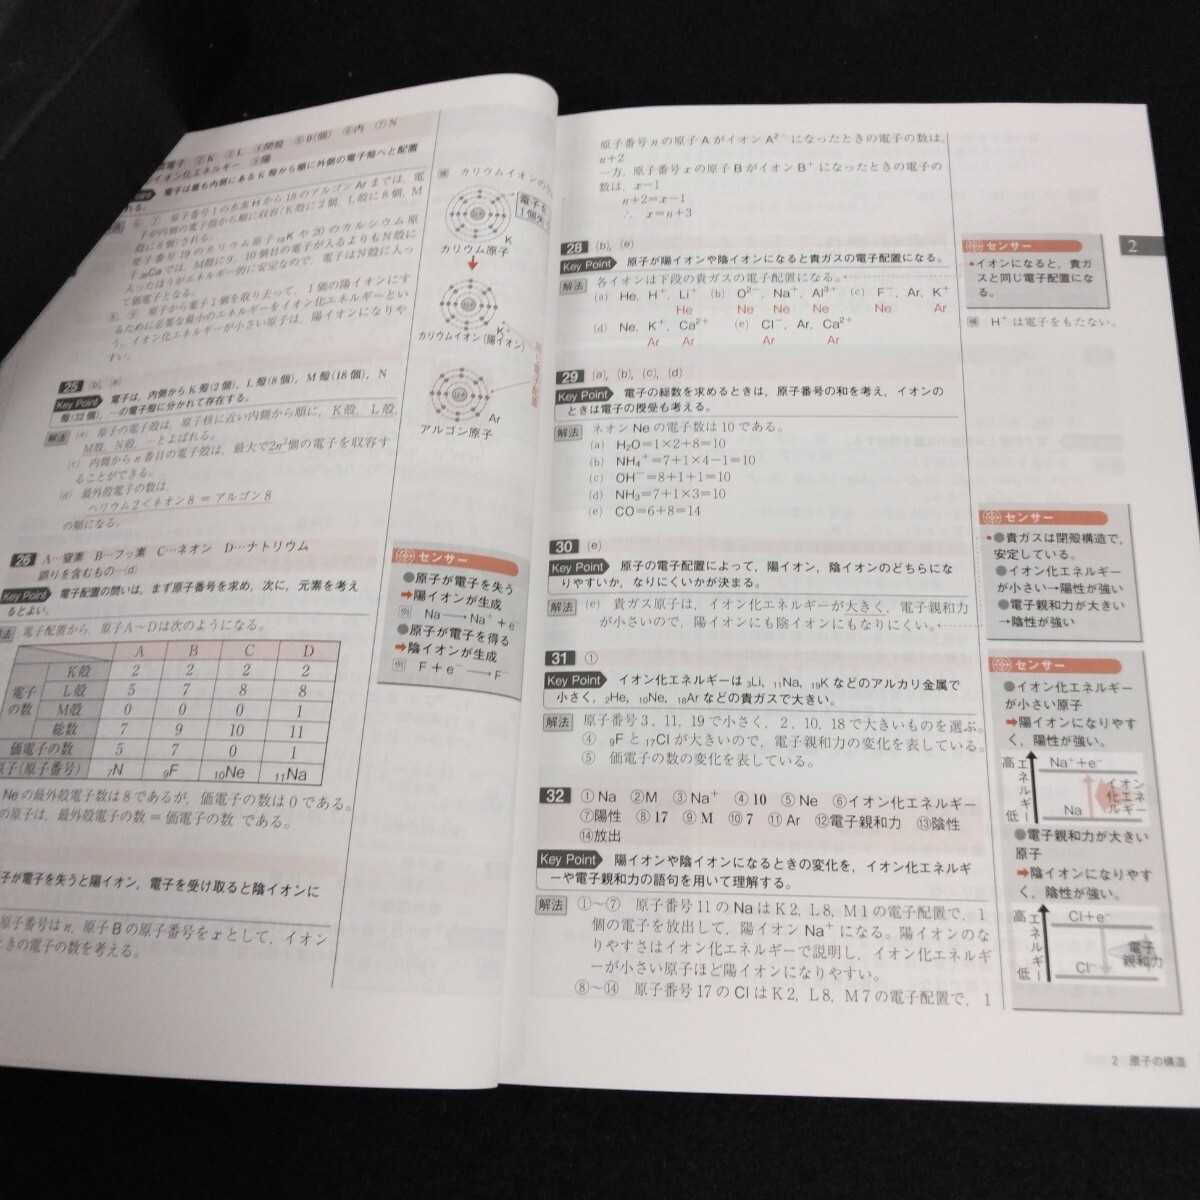 電子 ②K ③L ④閉殻 ⑤0(個) ⑥内 ⑦N
イオン化エネルギー ⑨陽
電子は最も内側にあるK殻から順に外側の電子殻へと配置
れる。
⑥,⑦ 原子番号1の水素Hから18のアルゴンArまでは,電
子が内側の電子殻から順に収容(K殻に2個,L殻に8個,M
殻に8個)される。
原子番号19のカリウム原子₁₉Kや20のカルシウム原
子₂₀Caでは,M殻に9,10個目の電子が入るよりもN殻に
入ったほうがエネルギー的に安定なので,電子はN殻に入っ
て価電子となる。
⑧,⑨ 原子から電子1個を取り去って,1価の陽イオンにす
るために必要な最小のエネルギーをイオン化エネルギーとい
う。イオン化エネルギーが小さい原子は,陽イオンになりや
すい。
25 (b),(e)
Key Point 電子は,内側からK殻(2個),L殻(8個),M殻(18個),N
殻(32個),…の電子殻に分かれて存在する。
解法 (a) 原子の電子殻は,原子核に近い内側から順に,K殻,L殻,
M殻,N殻,…とよばれる。
(c) 内側からn番目の電子殻は,最大で2n²個の電子を収容す
ることができる。
(d) 最外殻電子の数は,
ヘリウム2<ネオン8=アルゴン8
の順になる。
26 A…窒素 B…フッ素 C…ネオン D…ナトリウム
誤りを含むもの…(d)
Key Point 電子配置の問いは,まず原子番号を求め,次に,元素を考え
るとよい。
解法 電子配置から,原子A～Dは次のようになる。
A B C D
電子の数 K殻 2 2 2 2
L殻 5 7 8 8
M殻 0 0 0 1
総数 7 9 10 11
価電子の数 5 7 0 1
原子(原子番号) ₇N ₉F ₁₀Ne ₁₁Na
Neの最外殻電子数は8であるが,価電子の数は0である。
の原子は,最外殻電子の数=価電子の数 である。
子が電子を失うと陽イオン,電子を受け取ると陰イオンに
原子番号はn,原子Bの原子番号をxとして,イオン
ときの電子の数を考える。
補 カリウムイオンの
電子を
1個失
K
カリウム原子
K⁺
カリウムイオン(陽イオン)
Ar
アルゴン原子
センサー
●原子が電子を失う
➡陽イオンが生成
例 Na→Na⁺+e⁻
●原子が電子を得る
➡陰イオンが生成
例 F+e⁻→F⁻
原子番号nの原子AがイオンA²⁻になったときの電子の数は,
n+2
一方,原子番号xの原子BがイオンB⁺になったときの電子の
数は,x−1
n+2=x−1
∴ x=n+3
28 (b),(e)
Key Point 原子が陽イオンや陰イオンになると貴ガスの電子配置になる。
解法 各イオンは下段の貴ガスの電子配置になる。
(a) He, H⁺, Li⁺ (b) O²⁻, Na⁺, Al³⁺ (c) F⁻, Ar, K⁺
He Ne Ne Ne Ne Ar
(d) Ne, K⁺, Ca²⁺ (e) Cl⁻, Ar, Ca²⁺
Ar Ar Ar Ar
29 (a),(b),(c),(d)
Key Point 電子の総数を求めるときは,原子番号の和を考え,イオンの
ときは電子の授受も考える。
解法 ネオンNeの電子数は10である。
(a) H₂O=1×2+8=10
(b) NH₄⁺=7+1×4−1=10
(c) OH⁻=8+1+1=10
(d) NH₃=7+1×3=10
(e) CO=6+8=14
30 (e)
Key Point 原子の電子配置によって,陽イオン,陰イオンのどちらにな
りやすいか,なりにくいかが決まる。
解法 (e) 貴ガス原子は,イオン化エネルギーが大きく,電子親和力
が小さいので,陽イオンにも陰イオンにもなりにくい。
31 ①
Key Point イオン化エネルギーは₃Li,₁₁Na,₁₉Kなどのアルカリ金属で
小さく,₂He,₁₀Ne,₁₈Arなどの貴ガスで大きい。
解法 原子番号3,11,19で小さく,2,10,18で大きいものを選ぶ。
④ ₉Fと₁₇Clが大きいので,電子親和力の変化を表している。
⑤ 価電子の数の変化を表している。
32 ①Na ②M ③Na⁺ ④10 ⑤Ne ⑥イオン化エネルギー
⑦陽性 ⑧17 ⑨M ⑩7 ⑪Ar ⑫電子親和力 ⑬陰性
⑭放出
Key Point 陽イオンや陰イオンになるときの変化を,イオン化エネルギ
ーや電子親和力の語句を用いて理解する。
解法 ①～⑦ 原子番号11のNaはK2,L8,M1の電子配置で,1
個の電子を放出して,陽イオンNa⁺になる。陽イオンのな
りやすさはイオン化エネルギーで説明し,イオン化エネルギ
ーが小さい原子ほど陽イオンになりやすい。
⑧～⑭ 原子番号17のClはK2,L8,M7の電子配置で,1
センサー
●イオンになると,貴ガ
スと同じ電子配置にな
る。
補 H⁺は電子をもたない。
2
センサー
●貴ガスは閉殻構造で,
安定している。
●イオン化エネルギー
が小さい→陽性が強い
●電子親和力が大きい
→陰性が強い
センサー
●イオン化エネルギー
が小さい原子
➡陽イオンになりやす
く,陽性が強い。
高 エネルギー 低
Na⁺+e⁻
イオン化エネルギー
Na
●電子親和力が大きい
原子
➡陰イオンになりやす
く,陰性が強い。
高 エネルギー 低
Cl+e⁻
電子親和力
Cl⁻
2 原子の構造